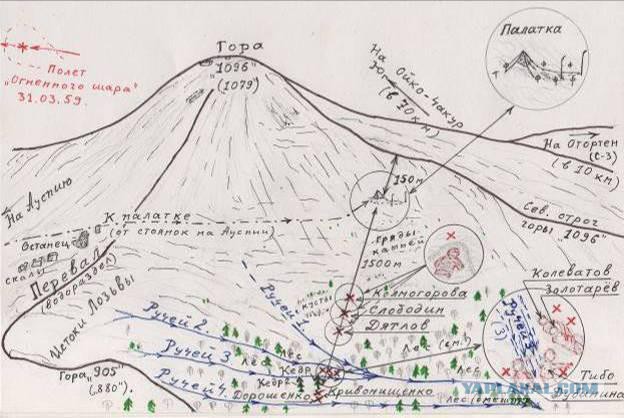 Полет
"Огненного шара"
31.03.59.
Гора
"1096"
(1079)
На Ойко-Чакур
(в 70 км)
Палатка
На Отортен
(С-З)
(в 10 км)
150 м
Сев. отрог
горы "1096"
На Ауспию
К палатке
(от стоянок на Ауспии)
Останец
скалы
Перевал
(водораздел)
Истоки Лозьвы
гряды
камней
1500м
Колмогорова
Слободин
Дятлов
Колеватов
Золотарёв
Ручей 1
Ручей 2
Ручей 3
Ручей 4
лес
лес
Лес (см.)
лес
Гора "905"
("880").
Кедр
Кедр2
Дорошенко
Кривонищенко
(3)
Тибо
Дубинина
YAPLAKAL.COM